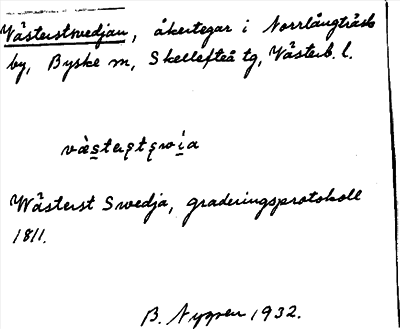 Västerstwedjan, åkertegar i Norrlångträsk
by, Byske sn, Skellefteå tg, Västerb. l.
Wästerst Swedja, graderingsprotokoll
1811.
B. Nygren 1932.